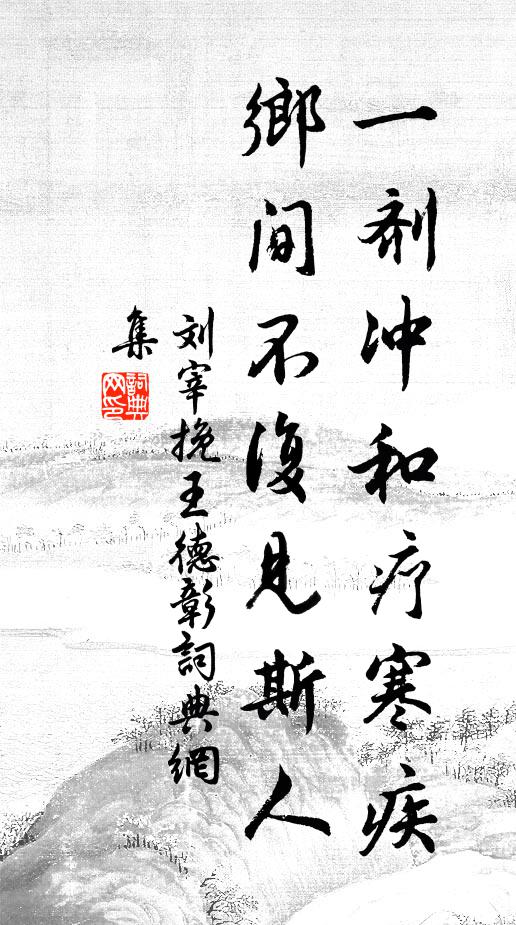 一剂冲和疗寒疾
鄉间不復見斯人
刘宰挽王德彰詞典網
集
詞典
网印